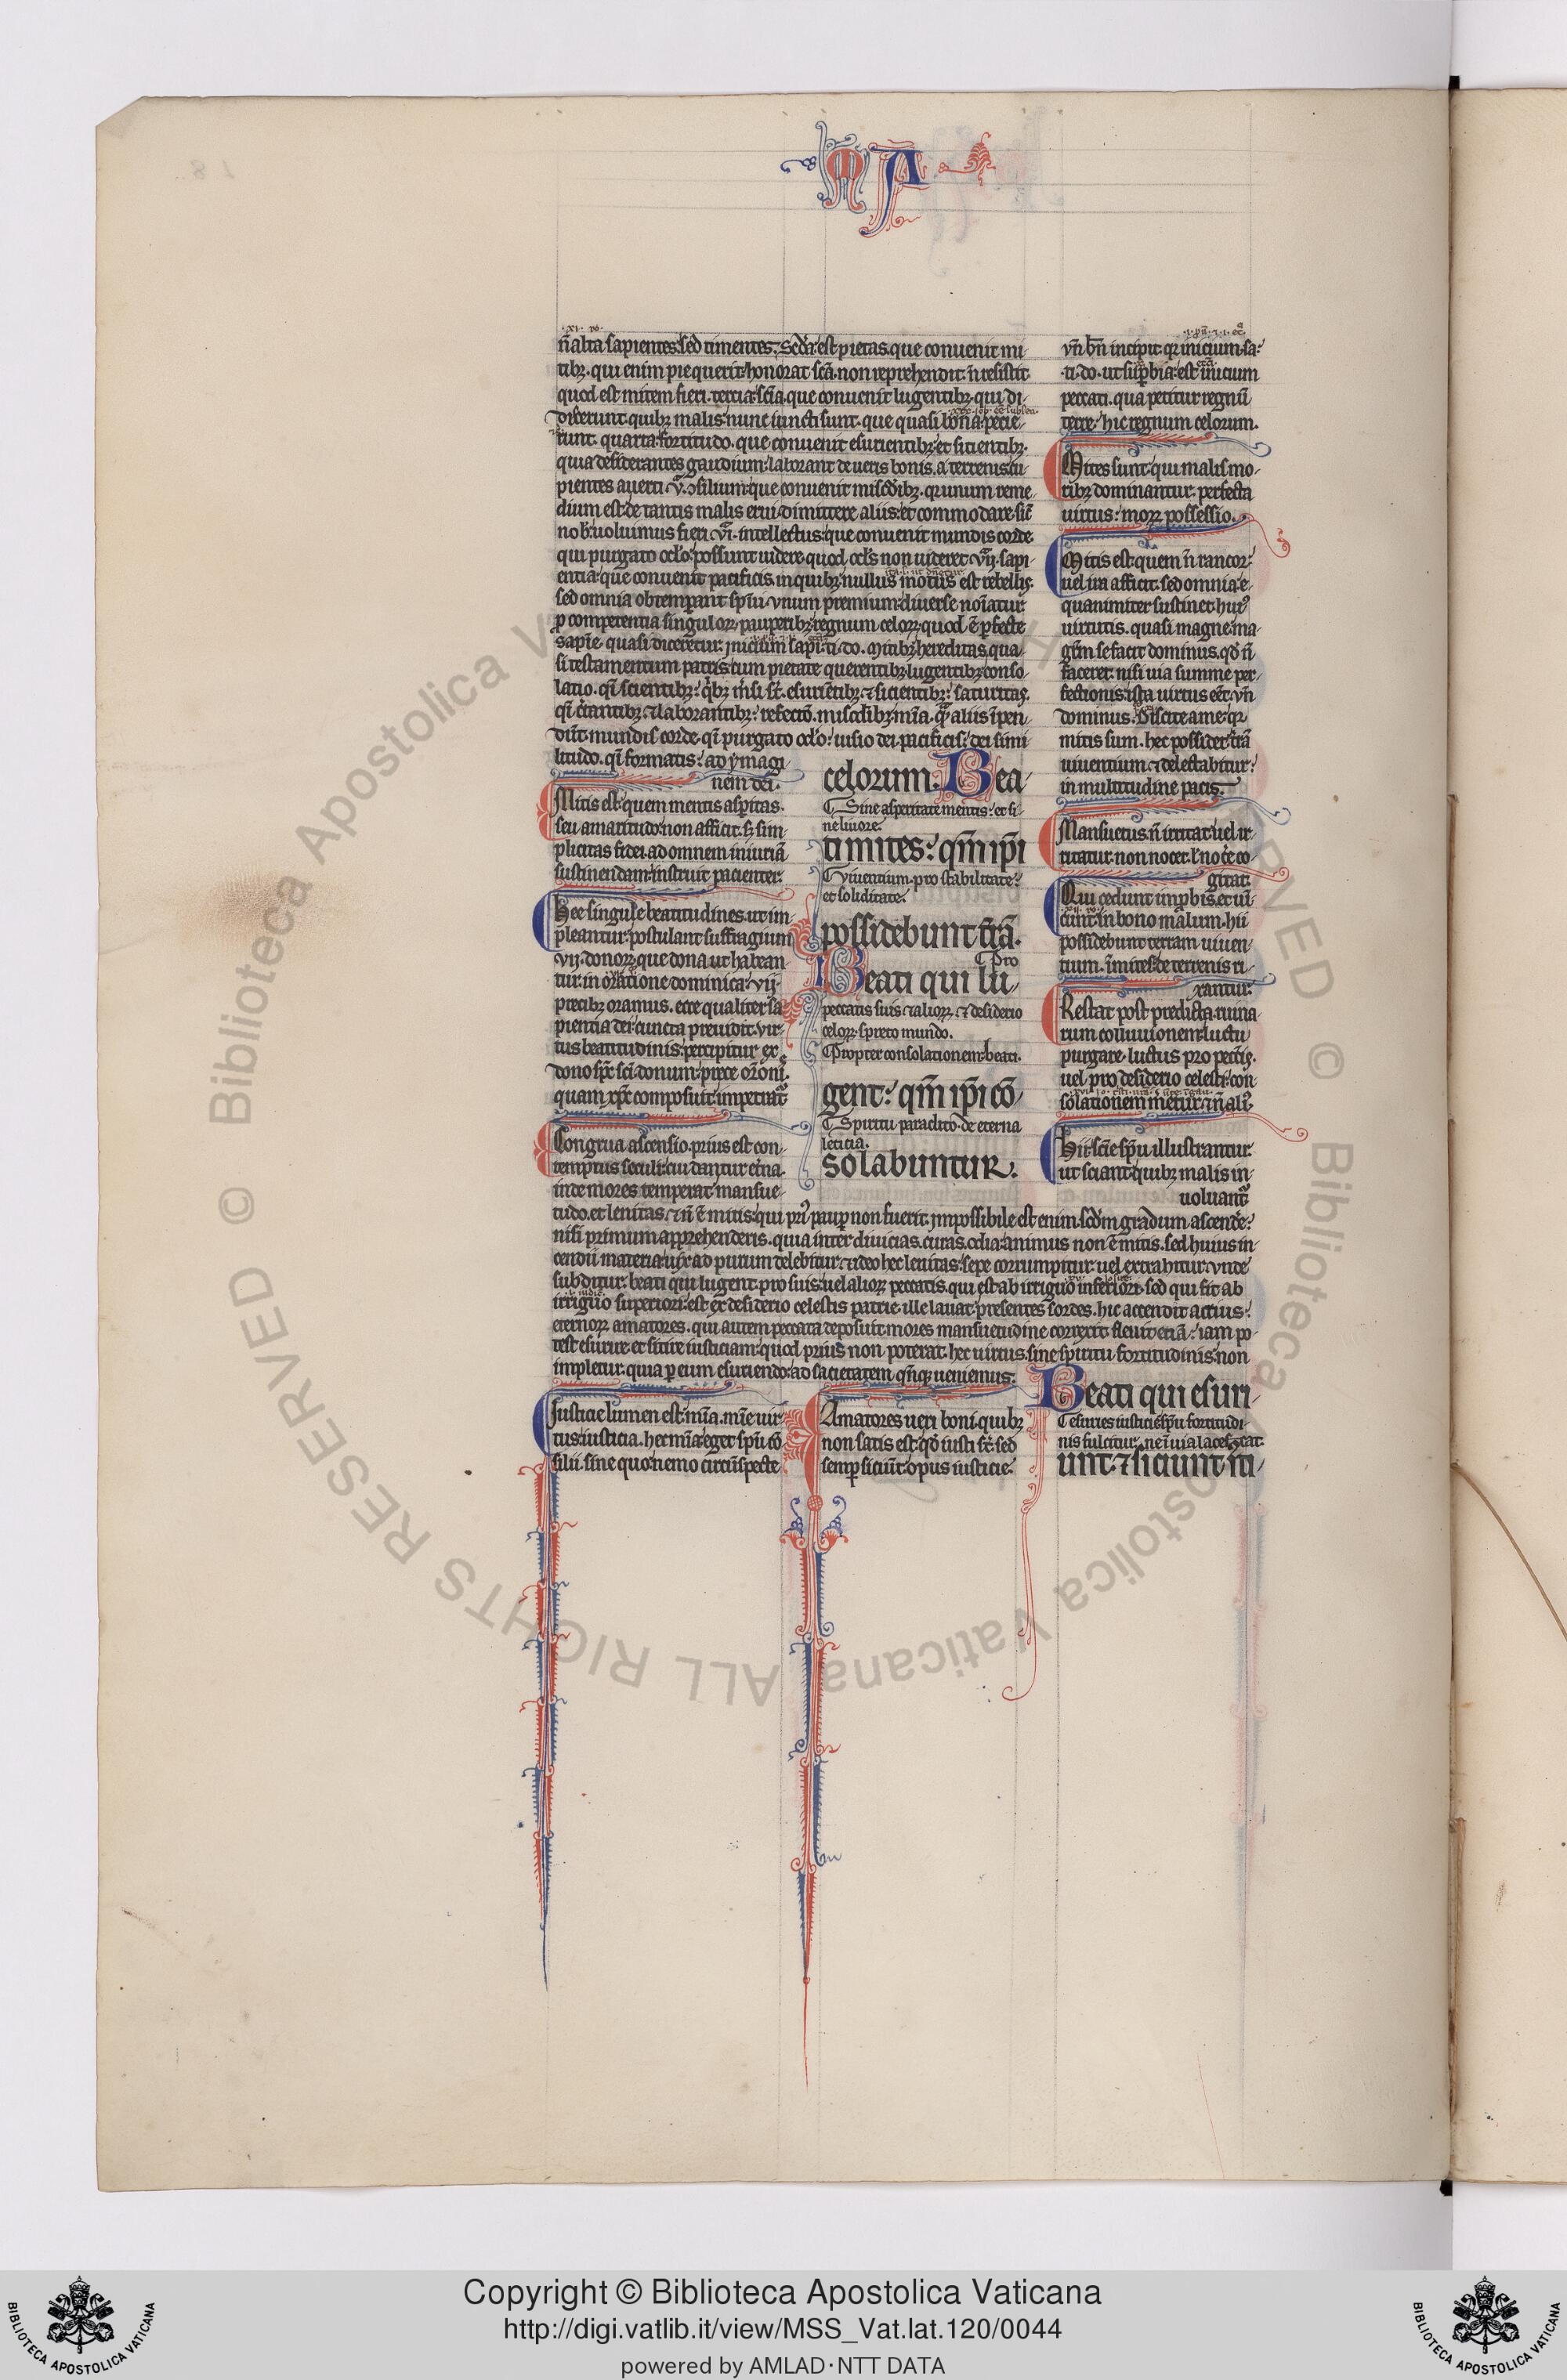 MA
n̄ alta sapientes. sed timentes. Scd̓a est pietas. que conuenit mi-
tibꝫ. qui enim pie querit honorat scā. non reprehendit. n̄ resistit
quod est mitem fieri. tercia scīa. que conuenit lugentibꝫ. qui di-
dicerunt quibꝫ malis nunc iuncti sunt. que quasi bona pecie-
runt. quarta fortitudo. que conuenit esurientibꝫ et sitientibꝫ.
quia desiderantes gaudium laborant de ueris bonis. a terrenis cu-
pientes auerti. v. ꝯsilium que conuenit misc̄dibꝫ. qꝛ unum reme-
dium est de tantis malis erui dimittere aliis et commodare sic̄
nob̄ uoluimus fieri. vi. intellectus que conuenit mundis corde
qui purgato oc̄lo possunt uidere quod oc̄ls non uideret. vij. sapi-
entia que conuenit pacificis. in quibꝫ nullus motus est rebellis.
sed omnia obtemꝑant spūi. vnum premium diuerse noīatur
ꝓ competentia singuloꝝ. pauperibꝫ regnum celoꝝ. quod ē ꝑfecte
sapīe. quasi diceretur. inicium sapī. ti. do. Mitibꝫ hereditas. qua-
si testamentum patris cum pietate querentibꝫ lugentibꝫ conso-
latio. qͥ scientibꝫ
esuriētibꝫ ⁊ sicientibꝫ saturitas.
⁊ laborantibꝫ refectō. misc̄dibꝫ mīa.
mundis corde. purgato oc̄lo uisio dei. pacificis dei simi-
litudo. formatis ad ymagi-
nem dei.
Mitis est quem mentis asꝑitas.
seu amaritudo non afficit. sꝫ sim-
plicitas fidei ad omnem iniuriā
sustinendam instruit pacienter.
Hee singule beatitudines ut im-
pleantur postulant suffragium
vij donoꝝ que dona ut habean-
tur in oratione dominica vij
precibꝫ oramus. ecce qualiter sa-
pientia dei cuncta preuidit. vir-
tus beatitudinis percipitur ex
dono sp̄c sc̄i. donum prece orōnis
quam xp̄c composuit impetrat̄
Congrua ascensio. prius est con-
temptus seculi cui dantur et̓na.
inde mores temperat mansue-
celorum. Bea-
Sine asperitate mentis et si-
ne liuore.
ti mites: qm̄ ip̄i
Viuentium pro stabilitate
et soliditate.
possidebunt t̄rā.
Pro
Beati qui lu-
peccatis suis ⁊ alioꝝ. ⁊ desiderio
celoꝝ spreto mundo.
Propter consolationem beati.
gent: qm̄ ip̄i cō-
Spiritu paraclito de eterna
leticia.
solabuntur.
vn̄ bn̄ incipit qꝛ inicium sa-
ti. do. ut suꝑbia est inicium
peccati. qua petitur regnū
terre. hic regnum celorum.
Mites sunt qui malis mo-
ribꝫ dominantur. perfecta
uirtus moꝝ possessio.
Mitis est quem n̄ rancor
uel ira afficit. sed omnia e-
quanimiter sustinet. huiꝰ
uirtutis. quasi magne ma-
gr̄m se facit dominus. qd̄ n̄
faceret nisi uia summe per-
fectionis ista uirtus eēt. vn̄
dominus. Discite a me qꝛ
mitis sum. hec possidet t̄rā
uiuentium. ⁊ delectabitur
in multitudine pacis.
Mansuetus n̄ irritat uel ir-
ritatur. non nocet. l̄ noc̄e co-
gitat.
Qui cedunt inꝓbis et ui-
cunt in bono malum. hii
possidebunt terram uiuen-
tium. īmites de terrenis ri-
xantur.
Restat post predicta ruina-
rum colluuionem luctu
purgare. luctus pro pecc̄is.
uel pro desiderio celesti con-
solationem metur. ⁊ n̄ aliꝰ.
Hii scīe sp̄u illustrantur
ut sciant quibꝫ malis in-
uoluant̄
tudo. et lenitas. ⁊ n̄ ē mitis qui priꝰ pauꝑ non fuerit. impossibile est enim scd̓m gradum ascende̓
nisi primum apprehenderis. quia inter diuicias. curas. odia animus non ē mitis. sed huius in-
cendii materia uix ad purum delebitur. ⁊ ideo hec lenitas sepe corrumpitur uel extrahitur. vnde
subditur. beati qui lugent pro suis uel alioꝝ peccatis. qui est ab irriguo inferiori. sed qui fit ab
irriguo superiori est ex desiderio celestis patrie. ille lauat presentes sordes. hic accendit actius
eternoꝝ amatores. qui autem peccata deposuit mores mansuetudine correxit. fleuit etiā. iam po-
test esurire et sitire iusticiam quod prius non poterat. hec uirtus sine spiritu fortitudinis non
impletur. quia ꝑ eum esuriendo ad sacietatem ueniemus.
Iusticie lumen est mīa. mīe uir-
tus iusticia. hec mīa eget sp̄u cō-
silii. sine quo nemo circūspecte
Amatores ueri boni quibꝫ
non satis est qd̄ iusti st̄. sed
semꝑ siciūt opus iusticie.
Beati qui esuri-
Esuries iusticie sp̄u fortitudi-
nis fulcitur. ne ī uia lacescat.
unt ⁊ siciunt iu-
Copyright © Biblioteca Apostolica Vaticana
http://digi.vatlib.it/view/MSS_Vat.lat.120/0044
powered by AMLAD·NTT DATA
BIBLIOTECA APOSTOLICA VATICANA
BIBLIOTECA APOSTOLICA VATICANA
© Biblioteca Apostolica Vaticana ALL RIGHTS RESERVED